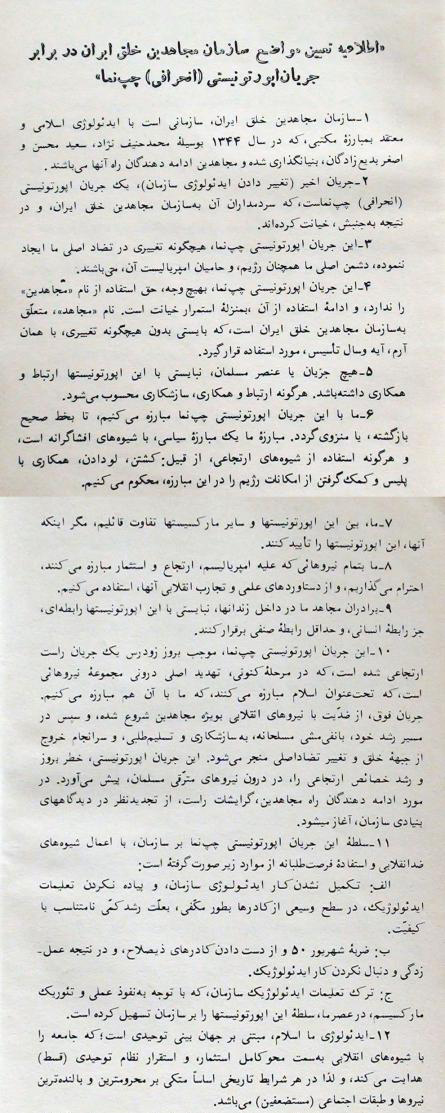 «اطلاعیه تعیین مواضع سازمان مجاهدین خلق ایران در برابر
جریان اپورتونیستی (انحرافی) چپ‌نما»
۱-سازمان مجاهدین خلق ایران، سازمانی است با ایدئولوژی اسلامی و
معتقد بمبارزهٔ مکتبی، که در سال ۱۳۴۴ بوسیلهٔ محمدحنیف نژاد، سعید محسن و
اصغر بدیع‌زادگان، بنیانگذاری شده و مجاهدین ادامه دهندگان راه آنها می‌باشند.
۲-جریان اخیر (تغییر دادن ایدئولوژی سازمان)، یك جریان اپورتونیستی
(انحرافی) چپ‌نماست، که سردمداران آن به‌سازمان مجاهدین خلق ایران، و در
نتیجه به‌جنبش، خیانت کرده‌اند.
۳-این جریان اپورتونیستی چپ‌نما، هیچگونه تغییری در تضاد اصلی ما ایجاد
ننموده، دشمن اصلی ما همچنان رژیم، و حامیان امپریالیست آن، می‌باشند.
۴-این جریان اپورتونیستی چپ‌نما، بهیچ‌وجه، حق استفاده از نام «مجاهدین»
را ندارد، و ادامهٔ استفاده از آن، بمنزلهٔ استمرار خیانت است. نام «مجاهد»، متعلّق
به‌سازمان مجاهدین خلق ایران است، که بایستی بدون هیچگونه تغییری، با همان
آرم، آیه وسال تأسیس، مورد استفاده قرار گیرد.
۵-هیچ جریان یا عنصر مسلمان، نبایستی با این اپورتونیستها ارتباط و
همکاری داشته‌باشد. هرگونه ارتباط و همکاری، سازشکاری محسوب می‌شود.
۶-ما با این جریان اپورتونیستی چپ‌نما مبارزه می‌کنیم، تا بخط صحیح
بازگشته، یا منزوی گردد. مبارزهٔ ما یك مبارزهٔ سیاسی، با شیوه‌های افشاگرانه است،
و هرگونه استفاده از شیوه‌های ارتجاعی، از قبیل: کشتن، لو‌دادن، همکاری با
پلیس و کمك گرفتن از امکانات رژیم را در این مبارزه، محکوم می‌کنیم.
۷-ما، بین این اپورتونیستها و سایر مارکسیستها تفاوت قائلیم، مگر اینکه
آنها، این اپورتونیستها را تأیید کنند.
۸-ما بتمام نیروهائی که علیه امپریالیسم، ارتجاع و استثمار مبارزه می‌کنند،
احترام می‌گذاریم، و از دستاوردهای علمی و تجارب انقلابی آنها، استفاده می‌کنیم.
۹-برادران مجاهد ما در داخل زندانها، نبایستی با این اپورتونیستها رابطه‌ای،
جز رابطهٔ انسانی، و حداقل رابطهٔ صنفی برقرار کنند.
۱۰-این جریان اپورتونیستی چپ‌نما، موجب بروز زودرس یك جریان راست
ارتجاعی شده است، که در مرحلهٔ کنونی، تهدید اصلی درونی مجموعهٔ نیروهائی
است، که تحت‌عنوان اسلام مبارزه می‌کنند، که ما با آن هم مبارزه می‌کنیم.
جریان فوق، از ضدّیت با نیروهای انقلابی بویژه مجاهدین شروع شده، و سپس در
مسیر رشد خود، بانفی‌مشی مسلحانه، به‌سازشکاری و تسلیم‌طلبی، و سرانجام خروج
از جبههٔ خلق و تغییر تضاداصلی منجر می‌شود. این جریان اپورتونیستی، خطر بروز
و رشد خصائص ارتجاعی را، در درون نیروهای مترّقی مسلمان، پیش می‌آورد. در
مورد ادامه دهندگان راه مجاهدین، گرایشات راست، از تجدیدنظر در دیدگاههای
بنیادی سازمان، آغاز میشود.
۱۱-سلطهٔ این جریان اپورتونیستی چپ‌نما بر سازمان، با اعمال شیوه‌های
ضدانقلابی و استفادهٔ فرصت‌طلبانه از موارد زیر صورت گرفته است:
الف: تکمیل نشدن کار ایدئولوژی سازمان، و پیاده نکردن تعلیمات
ایدئولوژیك، در سطح وسیعی از کادرها بطور مکّفی، بعلّت رشد کمّی نامتناسب با
کیفیّت.
ب: ضربهٔ شهریور ۵۰ و از دست دادن کادرهای ذیصلاح، و در نتیجه عمل-
زدگی و دنبال نکردن کار ایدئولوژیك.
ج: ترك تعلیمات ایدئولوژیك سازمان، که با توجه به‌نفوذ عملی و تئوریك
مارکسیسم، در عصر ما، سلطهٔ این اپورتونیستها را بر سازمان تسهیل کرده است.
۱۲-ایدئولوژی ما اسلام، مبتنی بر جهان بینی توحیدی است؛ که جامعه را
با شیوه‌های انقلابی به‌سمت محو کامل استثمار، و استقرار نظام توحیدی (قسط)
هدایت می‌کند، و لذا در هر شرایط تاریخی اساساً متکی بر محرومترین و بالنده‌ترین
نیروها و طبقات اجتماعی (مستضعفین) می‌باشد.